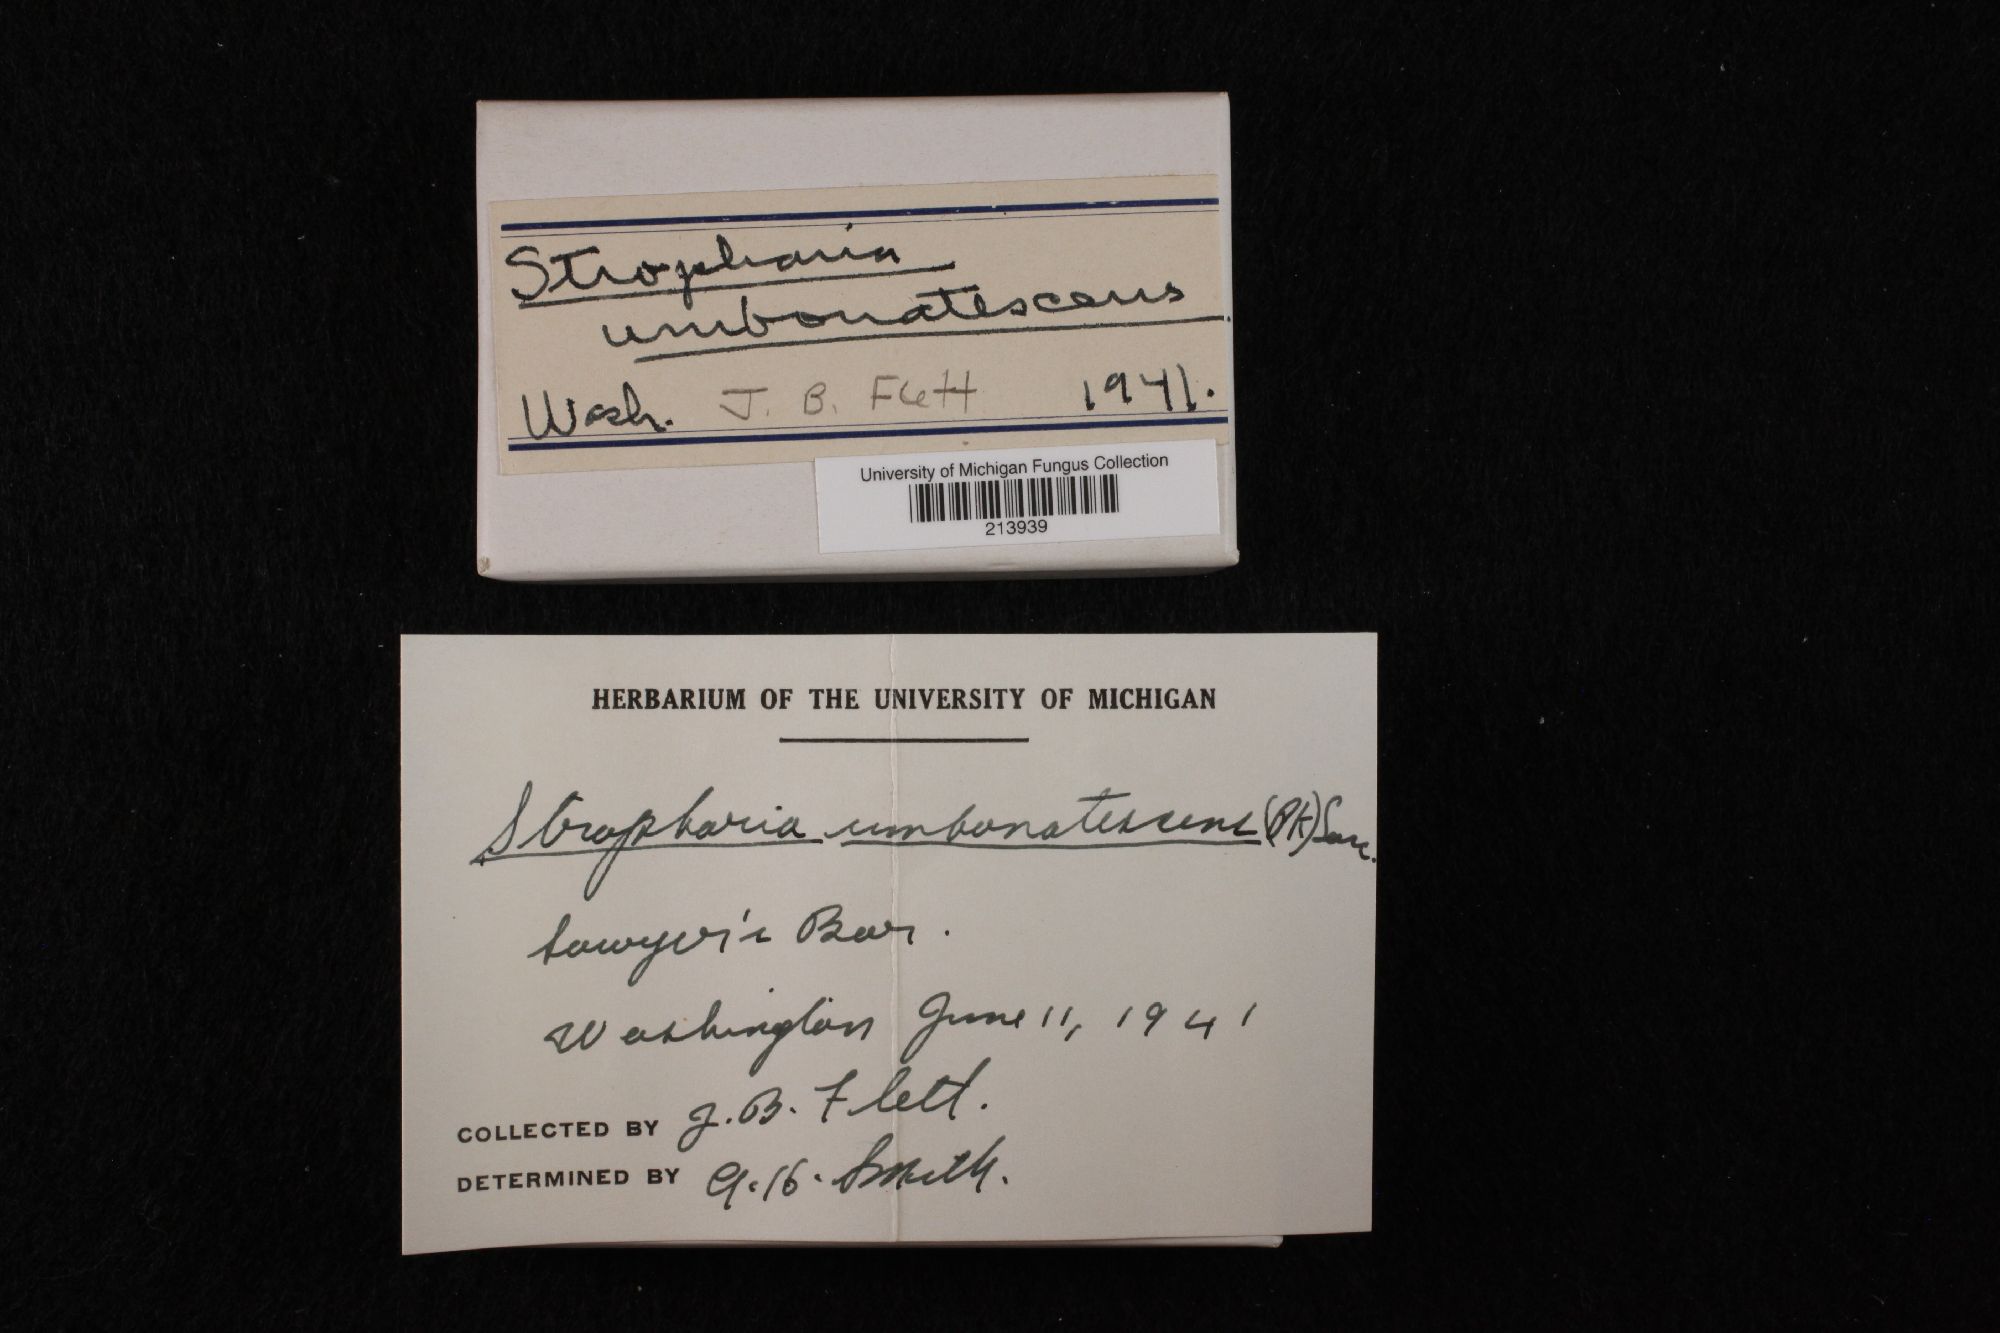 Stropharia
umbonatescens
Wash. J. B. Flett 1941.
University of Michigan Fungus Collection
213939
HERBARIUM OF THE UNIVERSITY OF MICHIGAN
Stropharia umbonatescens (Pk) Sacc.
Sawyer's Bar.
Washington June 11, 1941
COLLECTED BY J. B. Flett.
DETERMINED BY A. H. Smith.